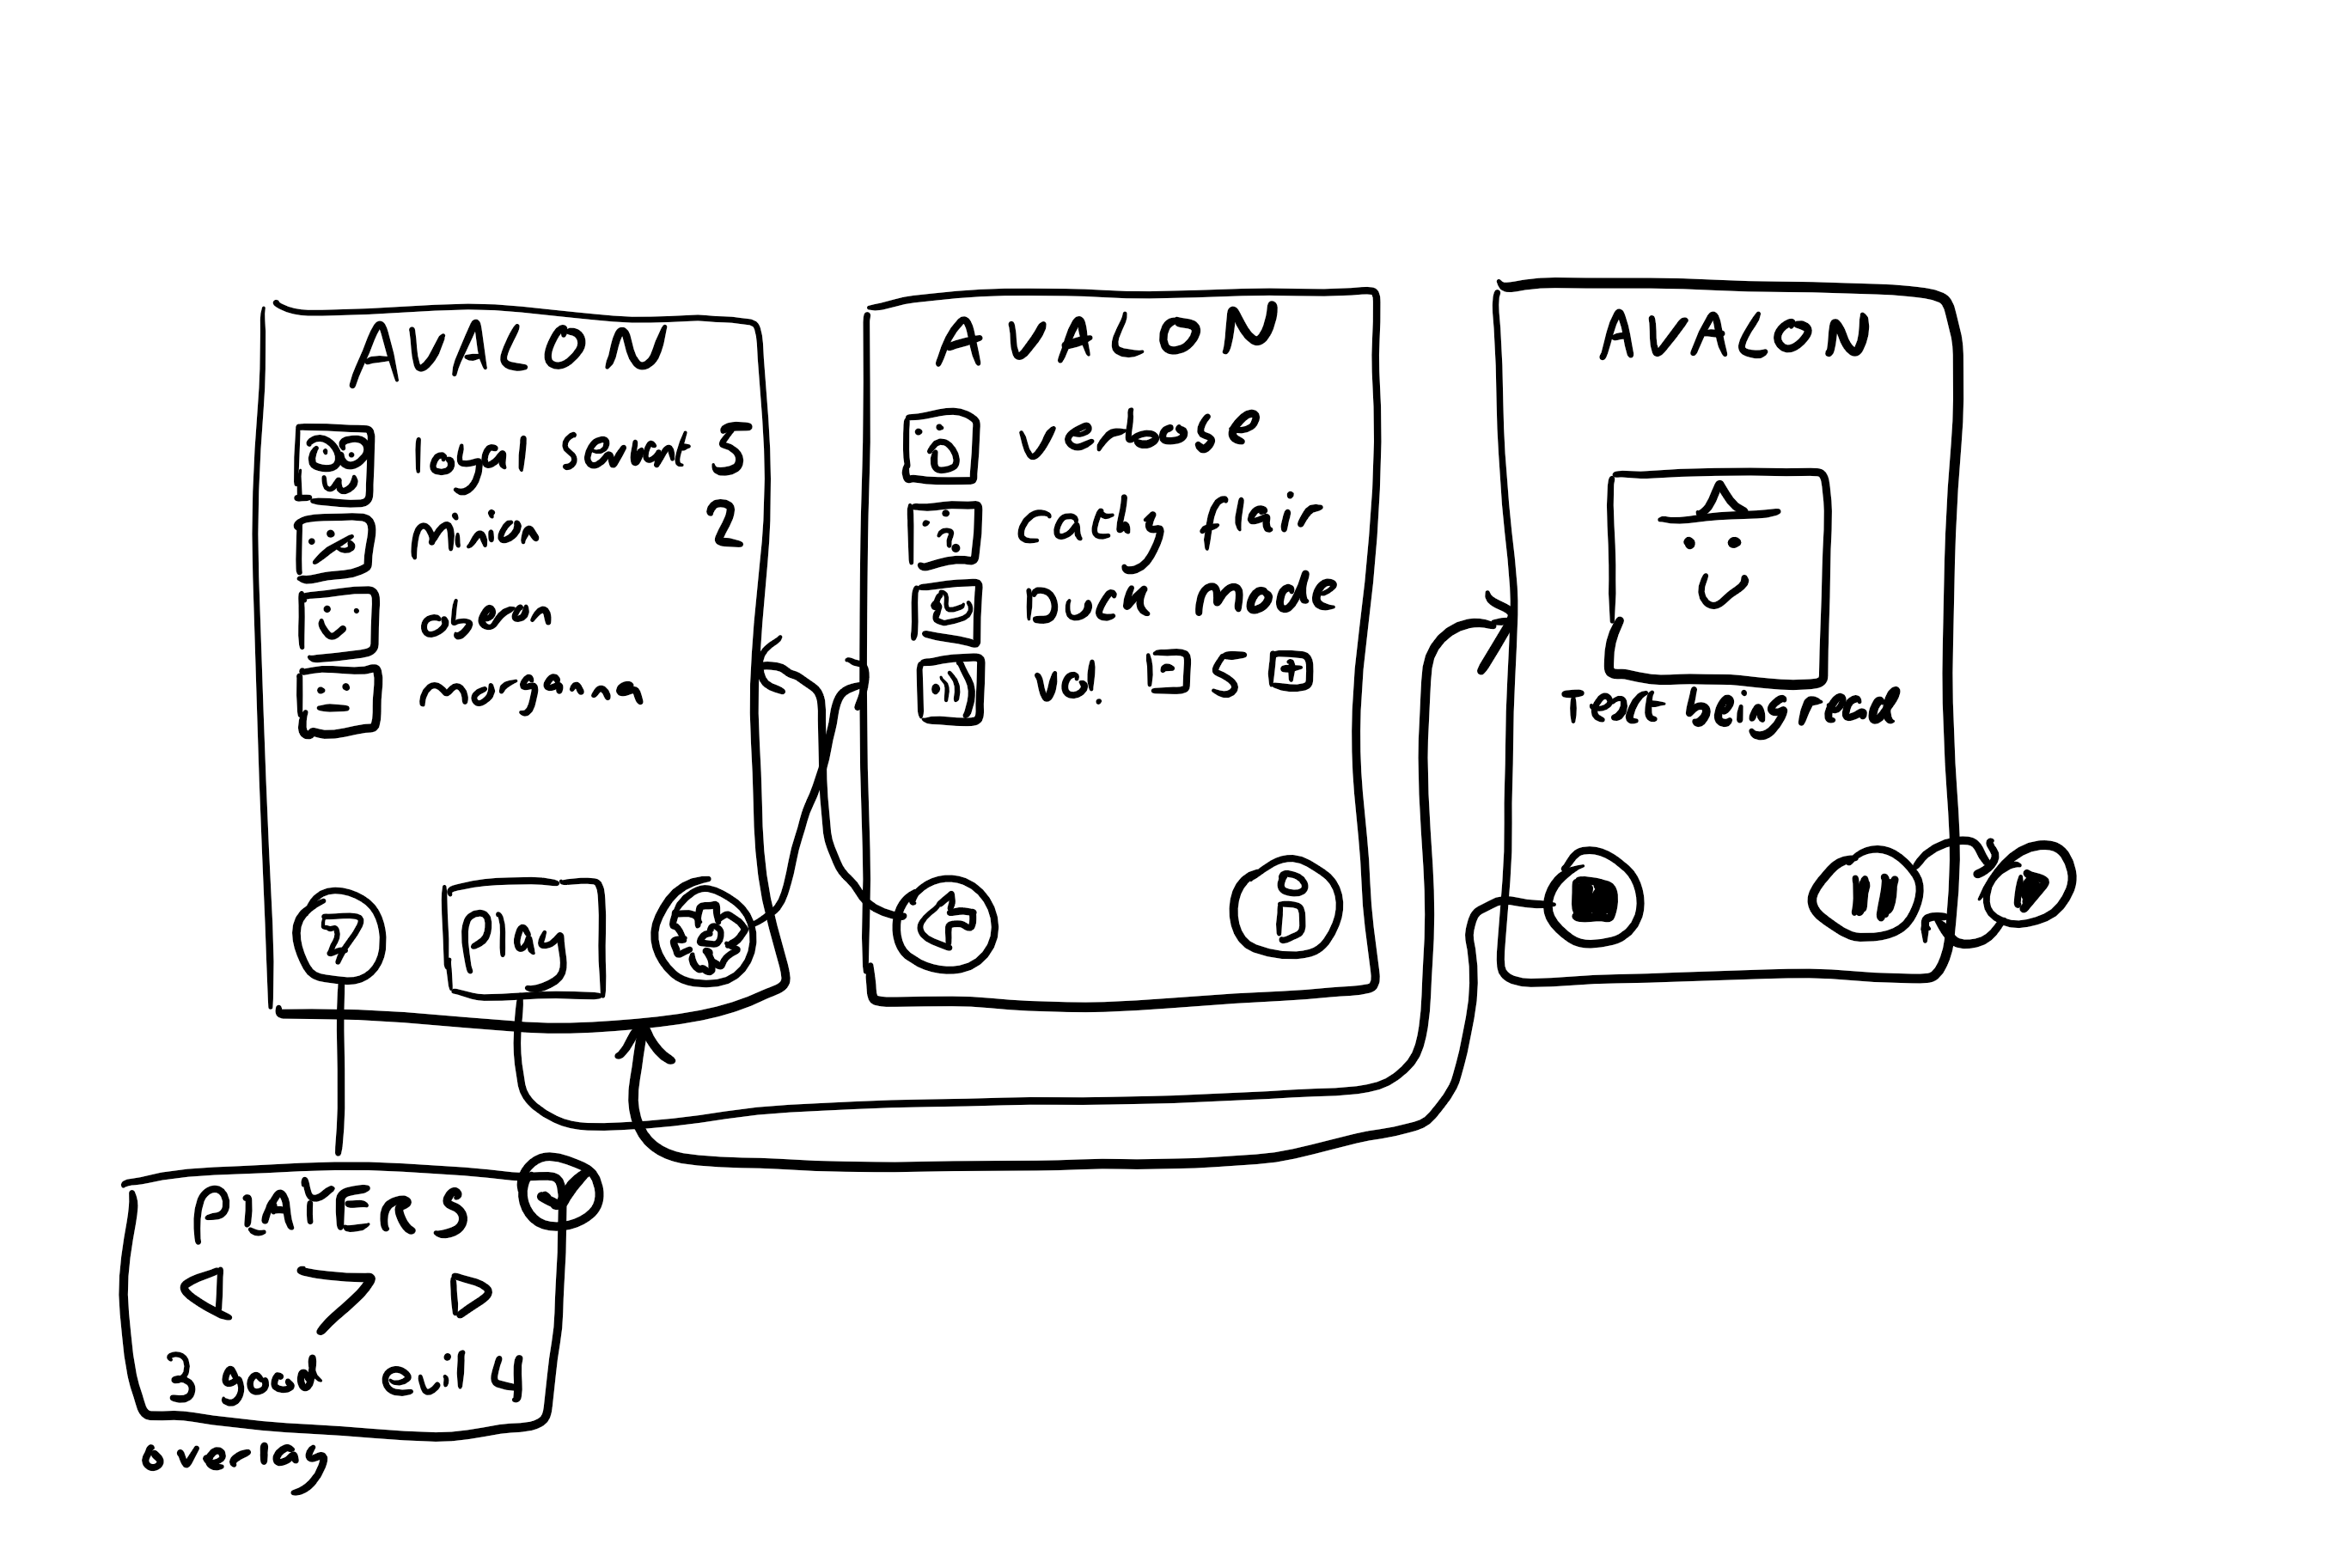 AVALON
loyal servant 5
minion 2
oberon
morgana
7
play
AVALON
verbose
Cachy flair
Duck mode
Vol. - 5 +
i
AVALON
Text being read
PlAYERS
7
3 good evil 4
overlay